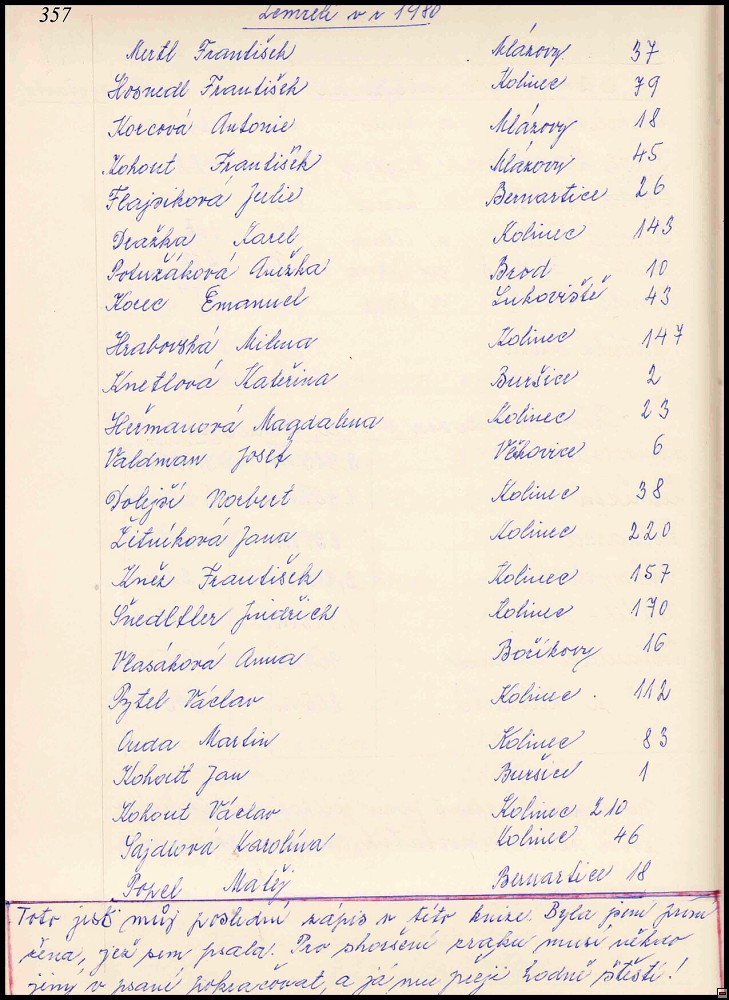 357
Zemřeli v r 1980
Mertl František Mlázovy 37
Hosnedl František Kolinec 79
Korcová Antonie Mlázovy 18
Kohout František Mlázovy 45
Flajšiková Julie Bernartice 26
Dražka Karel Kolinec 143
Potužáková Anežka Brod 10
Kocec Emanuel Lukoviště 43
Hrabovská Milena Kolinec 147
Knetlová Kateřina Buršice 2
Heřmanová Magdalena Kolinec 23
Valdman Josef Věřovice 6
Dolejší Norbert Kolinec 38
Žitníková Jana Kolinec 220
Kněz František Kolinec 157
Jindřich Kolinec 170
Vlasáková Anna Bořikovy 16
Pytel Václav Kolinec 112
Ouda Martin Kolinec 83
Kohout Jan Buršice 1
Kohout Václav Kolinec 210
Sajdlová Karolína Kolinec 46
Popel Matěj Bernartice 18
Toto jest můj poslední zápis v této knize. Byla jsem první
žena, jež sem psala. Pro zhoršení zraku musí někdo
jiný v psaní pokračovat, a já mu přeji hodně štěstí!